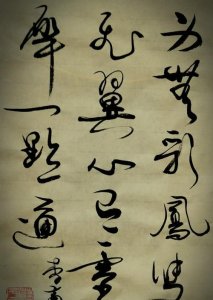 身無彩鳳雙
飛翼心有靈
犀一點通
李商